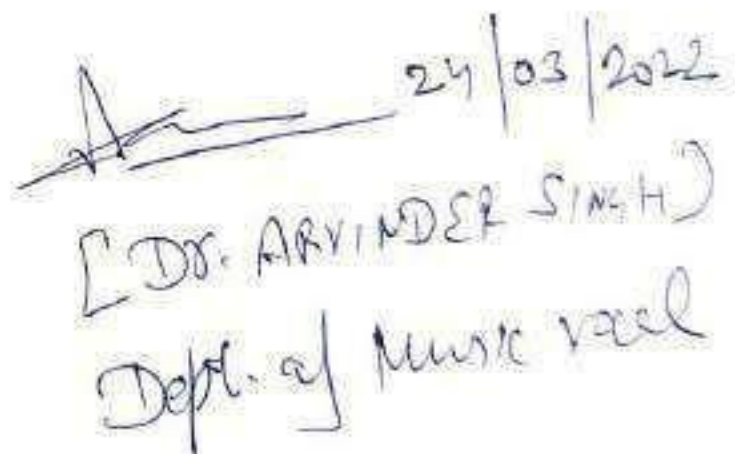 24/03/2022
[Dr. ARVINDER SINGH)
Deptt. of Music vocal